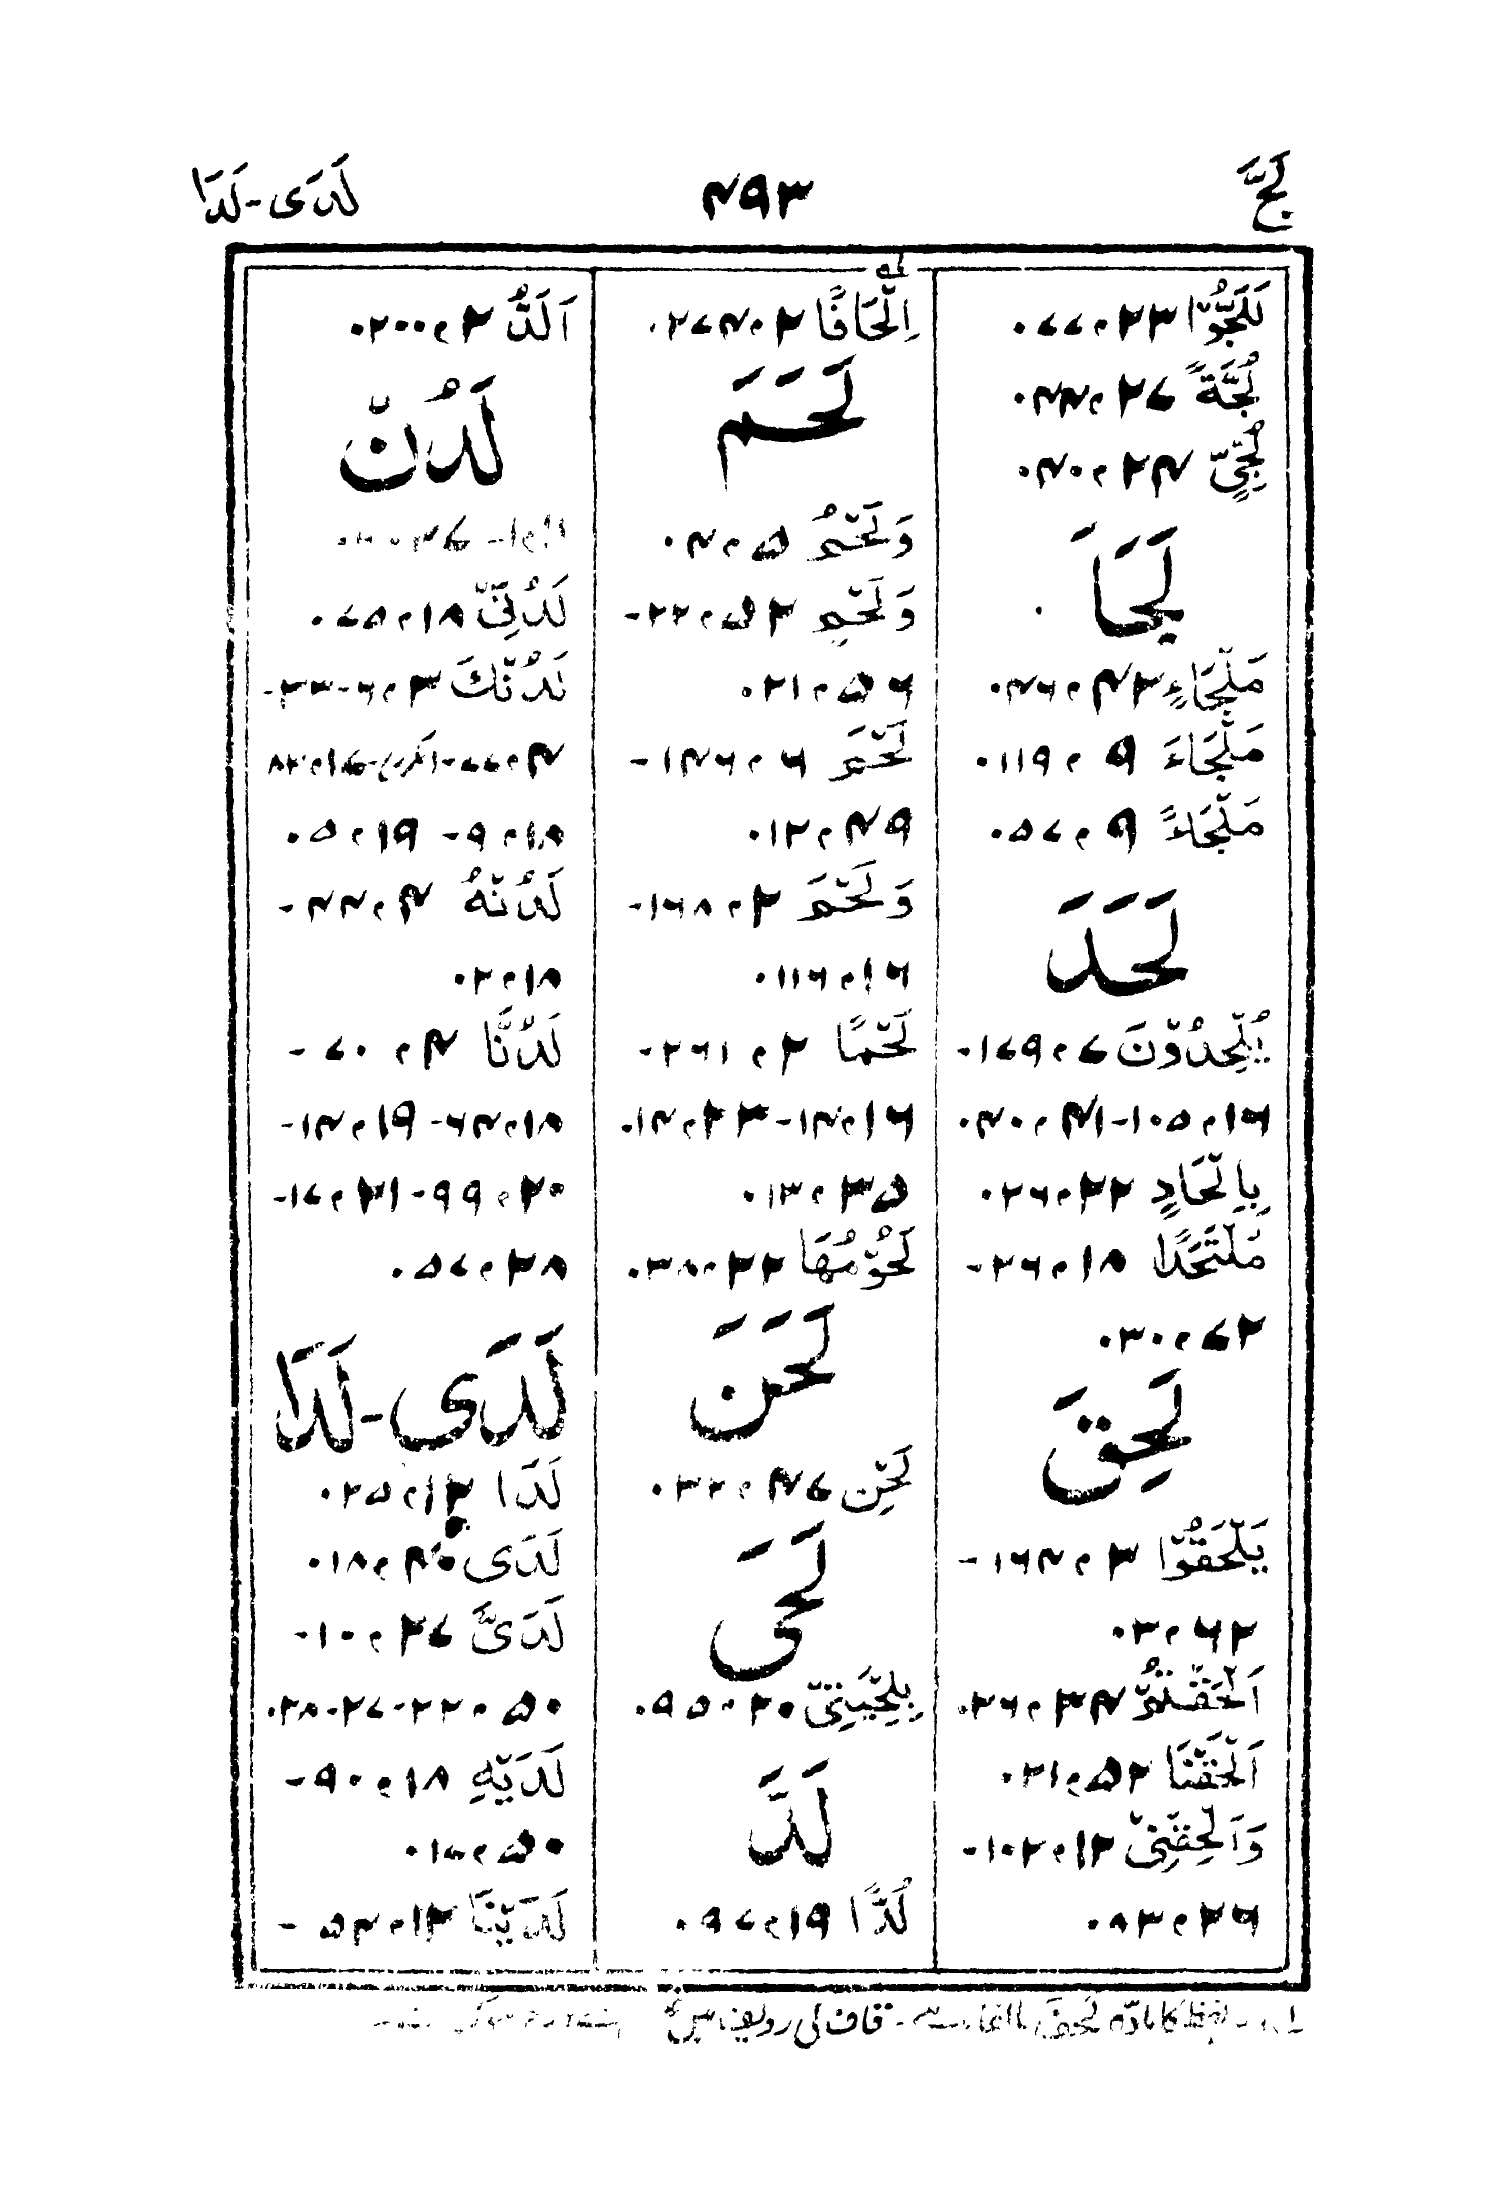 لَجَّ
۴۹۳
لَدَى-لَدَا
لَلَجُّوْا ۲۳، ۷۷.
لُجَّةً ۲۷، ۴۴.
لُجِّیٍّ ۲۴، ۴۰.
لَجَاَ
مَلْجَاءٍ ۴۲، ۴۶.
مَلْجَاءَ ۹، ۱۱۹.
مَلْجَاءً ۹، ۵۷.
لَحَدَ
یُلْحِدُوْنَ ۷، ۱۷۹-
۱۶، ۱۰۵-۴۱، ۴۰.
بِاِلْحَادٍ ۲۲، ۲۶.
مُلْتَحَدًا ۱۸، ۲۶-
۷۲، ۳۰.
لَحِقَ
یَلْحَقُوْا ۳، ۱۶۴-
۶۲، ۳.
اَلْحَقْتُمْ ۳۴، ۲۶.
اَلْحَقْنَا ۵۲، ۲۱.
وَاَلْحِقْنِیْ ۱۲، ۱۰۲-
۲۶، ۸۳.
لہ
اِلْحَافًا ۲، ۲۷۴.
لَحَمَ
وَلَحْمُ ۵، ۴.
وَلَحْمٍ ۵۲، ۲۲-
۵۶، ۲۱.
لَحْمَ ۶، ۱۴۶-
۴۹، ۱۲.
وَلَحْمَ ۲، ۱۶۸-
۱۶، ۱۱۶.
لَحْمًا ۲، ۲۶۱-
۱۶، ۱۴-۲۳، ۱۴.
۳۵، ۱۳.
لُحُوْمُهَا ۲۲، ۳۸.
لَحَنَ
لَحْنِ ۴۷، ۳۲.
لَحَی
بِلِحْیَتِیْ ۲۰، ۹۵.
لَدَّ
لُدًّا ۱۹، ۹۷.
اَلَدُّ ۲، ۲۰۰.
لَدُنْ
لَدُنِّیْ ۱۸، ۷۵.
لَدُنْكَ ۳، ۶-۳۳-
۴، ۷۷-
۱۸، ۹- ۱۹، ۵.
لَدُنْهُ ۴، ۴۴-
۱۸، ۲.
لَدُنَّا ۴، ۷۰-
۱۸، ۶۴- ۱۹، ۱۴-
۲۰، ۹۹-۲۱، ۱۷-
۲۸، ۵۷.
لَدَى-لَدَا
لَدَا ۱۲، ۲۵.
لَدَى ۴۰، ۱۸.
لَدَیَّ ۲۷، ۱۰-
۵۰، ۲۲-۲۷-۲۸.
لَدَیْهِ ۱۸، ۹۰-
۵۰، ۱۷.
لَدَیْنَا ۱۲، ۵۴-
کا مادّہ لحف قاف کی ردیف میں